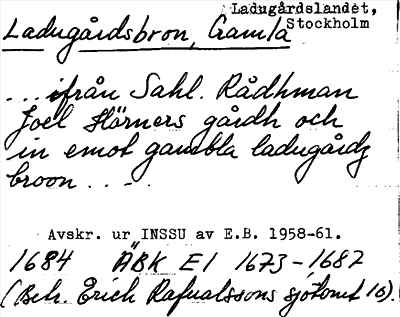 Ladugårdslandet,
Stockholm
Ladugårdsbron, Gamla
... ifrån Sahl. Rådhman
Joel Hörners gårdh och
in emot gambla ladugårdz
broon ...
Avskr. ur INSSU av E.B. 1958-61.
1684 ÄBK E1 1673-1687
(Betr. Erich Rafualssons sjötomt 16).